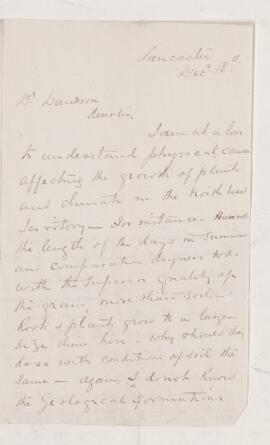 Lancaster
Decr 18th
Dr. Dawson
Dear Sir,
I am at a loss
to understand physical causes
affecting the growth of plants
and climate in the North West
Territory — For instance — Have not
the length of the days in Summer
and comparative dryness to do
with the superior quality of
the grain more than Soil —
Roots & plants grow to a large
size there — why should they
do so with condition of soil the
same — again, I do not know
the Geological formations